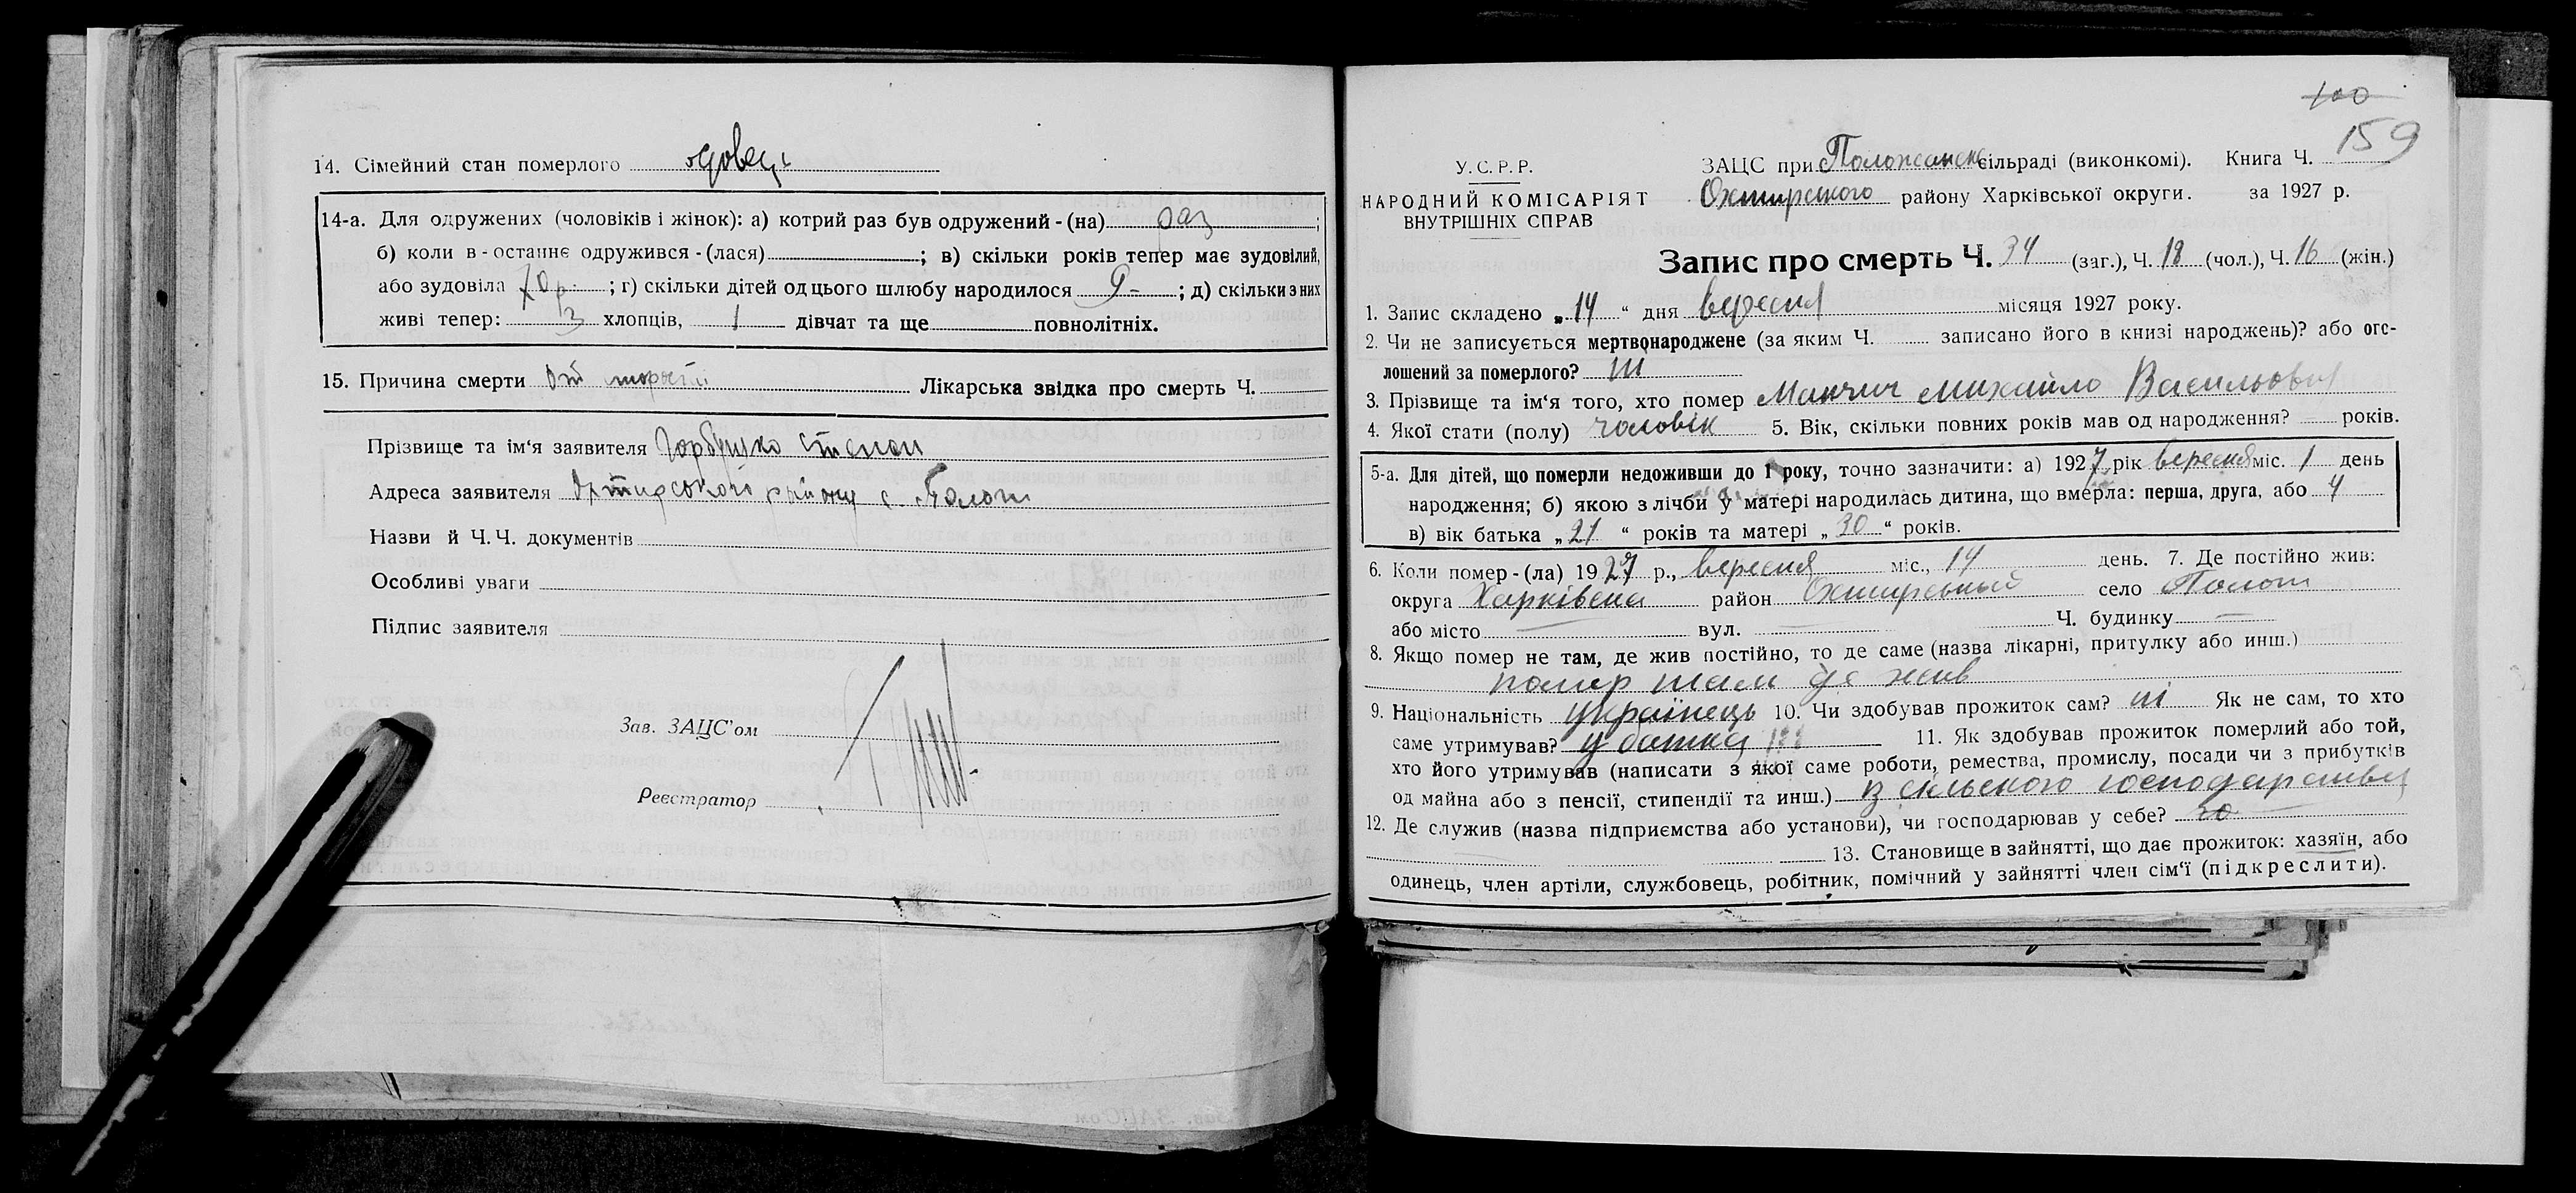 14. Сімейний стан померлого удовець
14-а. Для одружених (чоловіків і жінок): а) котрий раз був одружений - (на) раз ;
б) коли в - останнє одружився - (лася) ; в) скільки років тепер має зудовілий,
або зудовіла 70 р. ; г) скільки дітей од цього шлюбу народилося 9 - ; д) скільки з них
живі тепер: 3 хлопців, 1 дівчат та ще повнолітніх.
15. Причина смерти от Лікарська звідка про смерть Ч.
Прізвище та ім'я заявителя Горбушко Степан
Адреса заявителя району с.
Назви й Ч. Ч. документів
Особливі уваги
Підпис заявителя
Зав. ЗАЦС'ом
Реєстратор
100
159
У. С. Р. Р.
НАРОДНИЙ КОМІСАРІЯТ
ВНУТРІШНІХ СПРАВ
ЗАЦС при сільраді (виконкомі). Книга Ч.
району Харківської округи. за 1927 р.
Запис про смерть Ч. 34 (заг.), Ч. 18 (чол.), Ч. 16 (жін.)
1. Запис складено „ 14 “ дня вересня місяця 1927 року.
2. Чи не записується мертвонароджене (за яким Ч. записано його в книзі народжень)? або ого-
лошений за померлого? ні
3. Прізвище та ім'я того, хто помер Михайло Васильович
4. Якої стати (полу) чоловік 5. Вік, скільки повних років мав од народження? — років.
5-а. Для дітей, що померли недоживши до 1 року, точно зазначити: а) 1927 рік вересня міс. 1 день
народження; б) якою з лічби у матері народилась дитина, що вмерла: перша, друга, або 4
в) вік батька „ 21 “ років та матері „ 30 “ років.
6. Коли помер - (ла) 1927 р., вересня міс., 14 день. 7. Де постійно жив:
округа Харківська район село
або місто — вул. — Ч. будинку —
8. Якщо помер не там, де жив постійно, то де саме (назва лікарні, притулку або инш.)
помер там де жив
9. Національність українець 10. Чи здобував прожиток сам? ні Як не сам, то хто
саме утримував? у батька 11. Як здобував прожиток померлий або той,
хто його утримував (написати з якої саме роботи, ремества, промислу, посади чи з прибутків
од майна або з пенсії, стипендії та инш.) із сільського господарства
12. Де служив (назва підприємства або установи), чи господарював у себе?
13. Становище в зайнятті, що дає прожиток: хазяїн, або
одинець, член артіли, службовець, робітник, помічний у зайнятті член сім'ї (підкреслити).